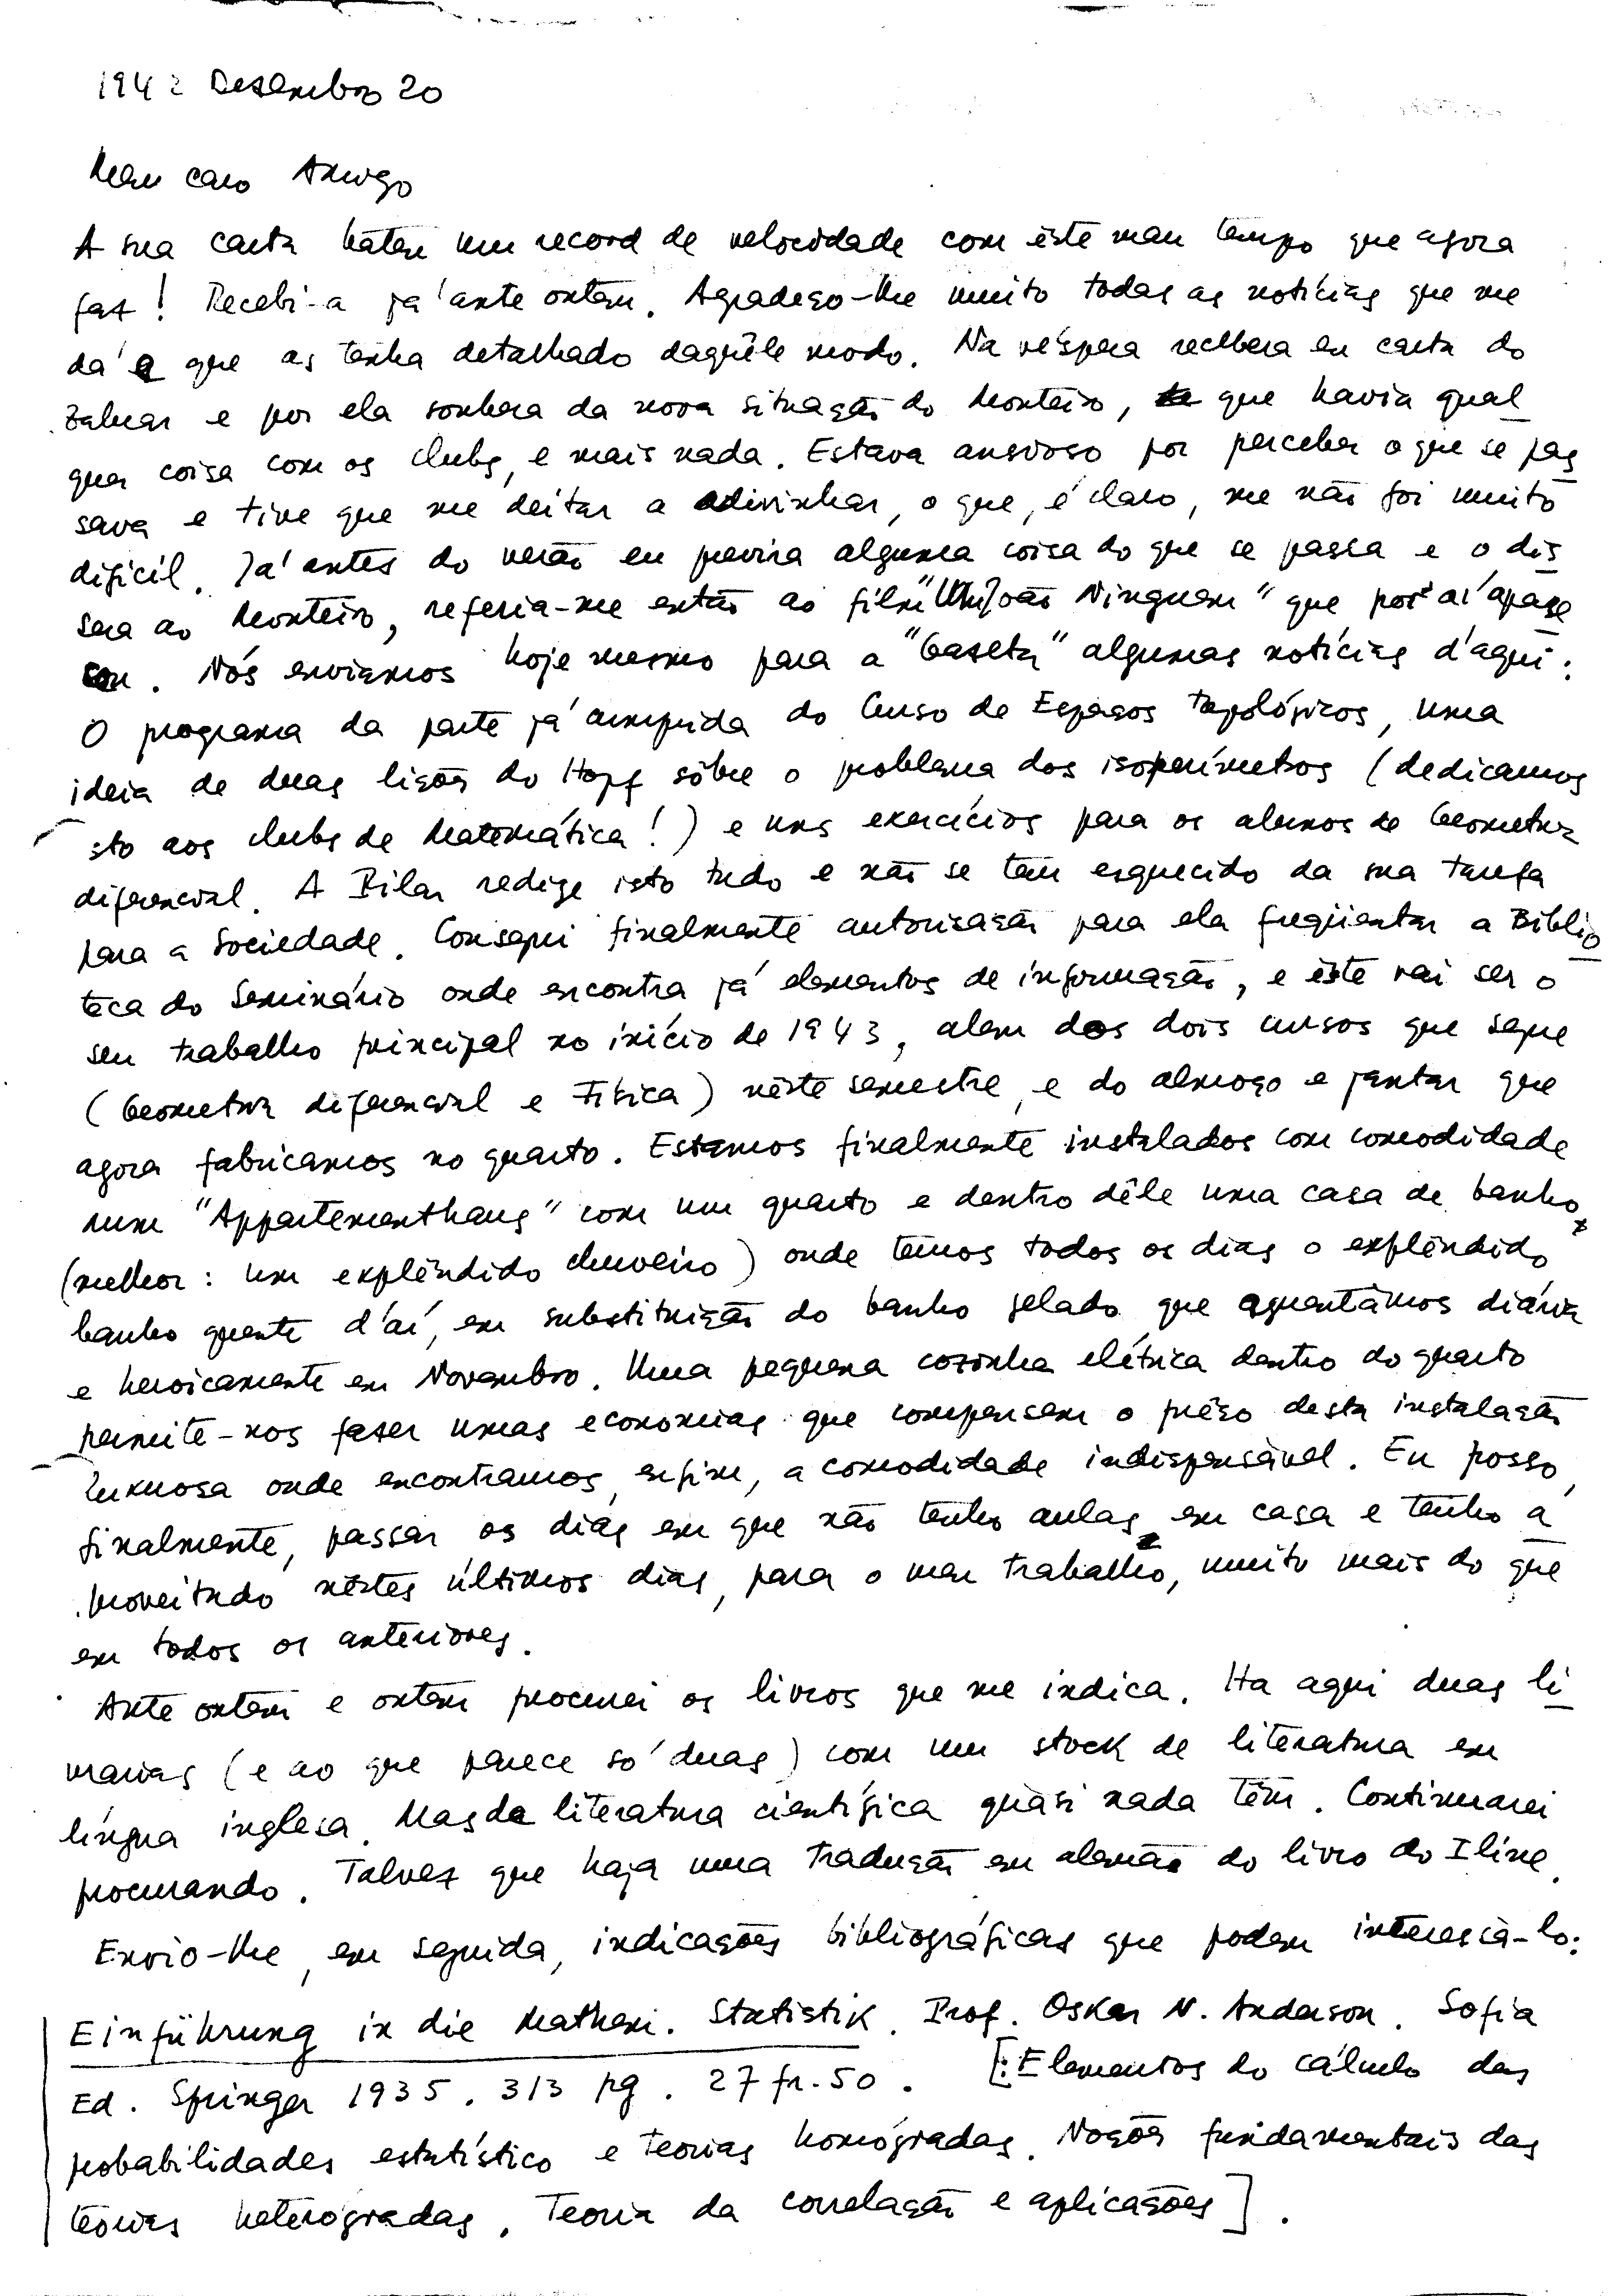 1942 Dezembro 20
Meu caro Amigo
A sua carta bateu um record de velocidade com êste mau tempo que agora
faz! Recebi-a já ante ontem. Agradeço-lhe muito todas as notícias que me
dá e que as tenha detalhado daquêle modo. Na véspera recebera eu carta do
Zaluar e por ela soubera da nova situação do Monteiro, que havia qual
quer coisa com os clubs, e mais nada. Estava ansioso por perceber o que se pas
sava e tive que me deitar a adivinhar, o que, é claro, me não foi muito
difícil. Já antes do verão eu previra alguma coisa do que se passa e o dis
sera ao Monteiro, referia-me então ao film "Um João Ninguem" que por aí apare
ceu. Nós enviamos hoje mesmo para a "Gazeta" algumas notícias d'aqui:
O programa da parte já cumprida do Curso de Espaços Topológicos, uma
ideia de duas lições do Hopf sôbre o problema dos isoperímetros (dedicamos
isto aos clubs de Matemática!) e uns exercícios para os alunos de Geometria
diferencial. A Pilar redige isto tudo e não se tem esquecido da sua tarefa
para a Sociedade. Consegui finalmente autorisação para ela freqüentar a Biblio
teca do Seminário onde encontra já elementos de informação, e êste vai ser o
seu trabalho principal no início de 1943, alem dos dois cursos que segue
(Geometria diferencial e Física) nêste semestre, e do almoço e jantar que
agora fabricamos no quarto. Estamos finalmente instalados com comodidade
num "Appartementhaus" com um quarto e dentro dêle uma casa de banho
(melhor: um explêndido chuveiro) onde temos todos os dias o explêndido
banho quente d'aí, em substituição do banho gelado que aguentámos diária
e heroicamente em Novembro. Uma pequena cozinha elétrica dentro do quarto
permite-nos fazer umas economias que compensem o prêço desta instalação
luxuosa onde encontramos, enfim, a comodidade indispensável. Eu posso,
finalmente, passar os dias em que não tenho aulas em casa e tenho a
proveitado nêstes últimos dias, para o meu trabalho, muito mais do que
em todos os anteriores.
Ante ontem e ontem procurei os livros que me indica. Ha aqui duas li
vrarias (e ao que parece só duas) com um stock de literatura em
língua inglesa. Mas de literatura científica quàsi nada têm. Continuarei
procurando. Talvez que haja uma tradução em alemão do livro do Iline.
Envio-lhe, em seguida, indicações bibliográficas que podem interessá-lo:
Einführung in die Mathem. Statistik. Prof. Oskar N. Anderson. Sofia
Ed. Springer 1935. 313 pg. 27 fr. 50. [: Elementos do cálculo das
probabilidades estatístico e teorias homógradas. Noções fundamentais das
teorias heterógradas. Teoria da correlação e aplicações].